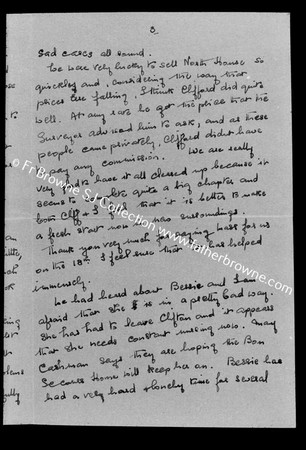 8
Sad cases all round.
We were very lucky to sell North House so
quickly and, considering the way that
prices are falling, I think Clifford did quite
well. At any rate he got the price that the
Surveyor advised him to ask, and as these
people came privately, Clifford didn't have
to pay any commission. We are really
very glad to have it all cleared up because it
seems to close quite a big chapter and
both Cliff & I feel that it is better to make
a fresh start now in new surroundings.
Thank you very much for saying Mass for us
on the 18th. I feel sure that it has helped
immensely.
We had heard about Bessie and I am
afraid that she is in a pretty bad way.
She has had to leave Clifton and it appears
that she needs constant nursing now. Mary
Cashman says they are hoping the Bon
Secours Home will keep her on. Bessie has
had a very hard & lonely time for several
© Fr Browne S.J. Collection www.fatherbrowne.com